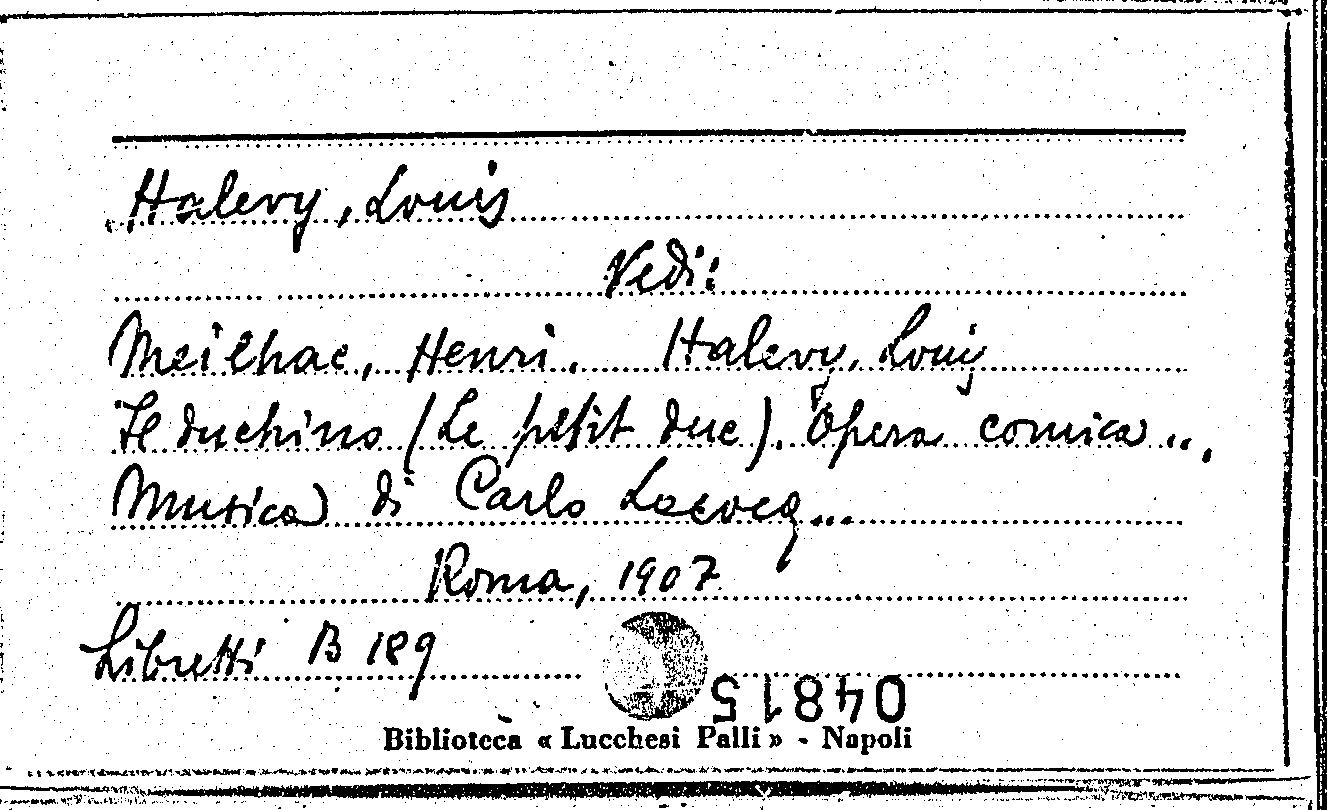 Halevy, Louis
Vedi:
Meilhac, Henri. Halevy, Louis
Il duchino (Le petit duc). Opera comica ...
Musica di Carlo Lecocq...
Roma, 1907
Libretti B 189
04815
Biblioteca « Lucchesi Palli » - Napoli